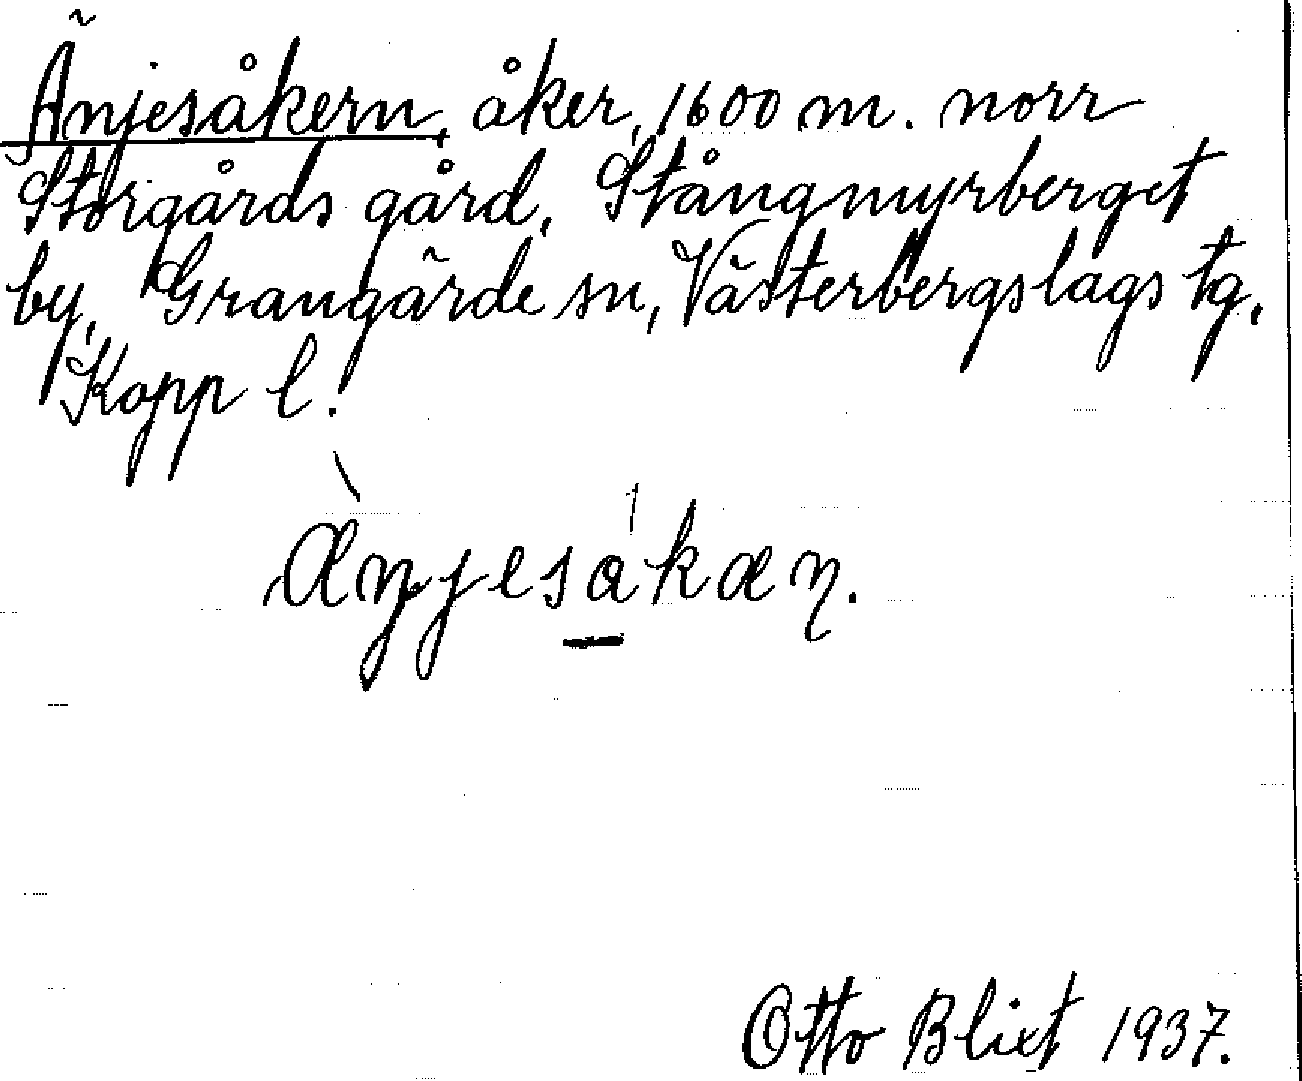 Änjesåkern, åker, 1600 m. norr
Storgårds gård, Stångmyrberget
by, Grangärde sn, Västerbergslags tg,
Kopp l.
Ænjesåkæn.
Otto Blixt 1937.